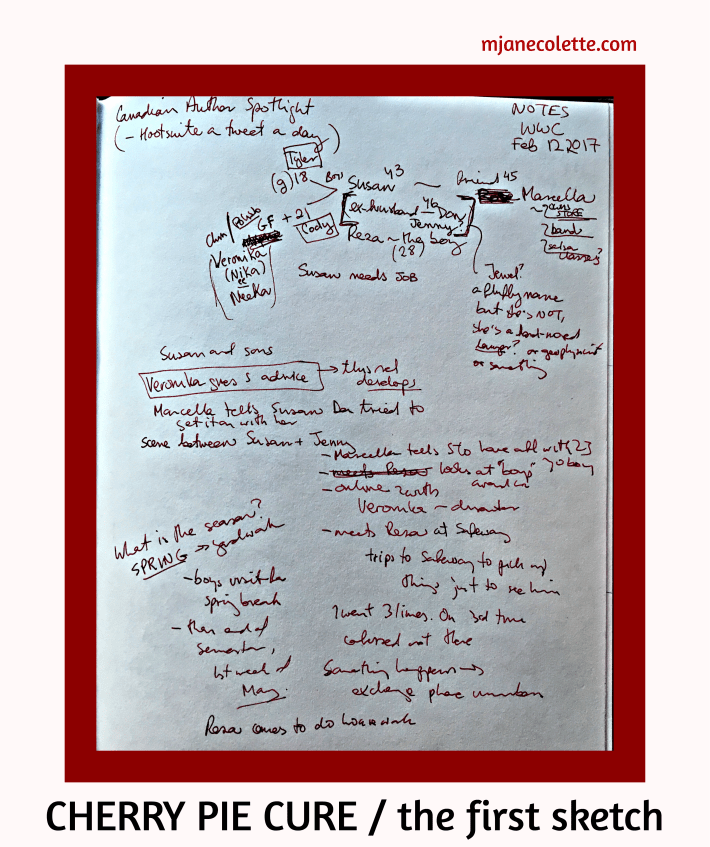 mjanecolette.com
Canadian Author Spotlight
(- Hootsuite a tweet a day)
NOTES
WWC
Feb 12 2017
Tyler
(g) 18
Boys
Susan 43
~
friend 45
Marcella
ex-husband 46 Don
Jenny?
Reza ~ the boy
(28)
GF + 21
Cody
Veronika
(Nika)
NeeKa
Susan needs JOB
STORE
? band
? salsa
classes?
Jewel?
a fluffy name
but she's NOT,
she's a hard-nosed
Lawyer? or geophysicist
or something
Susan and sons
Veronika gives S advice
develops
Marcella tells Susan Don tried to
get it on with her
scene between Susan + Jenny
- Marcella tells S to have affair with
- meets Reza looks at "boys"
- online
Veronika ~ disaster
- meets Reza at Safeway
trips to Safeway to pick up
things just to see him
? went 3 times. On 3rd time
not there
Something happens →
exchange phone numbers
What is the season?
SPRING → yardwork
- boys visit for
spring break
- then end of
semester,
last week of
May.
Reza comes to do
CHERRY PIE CURE / the first sketch